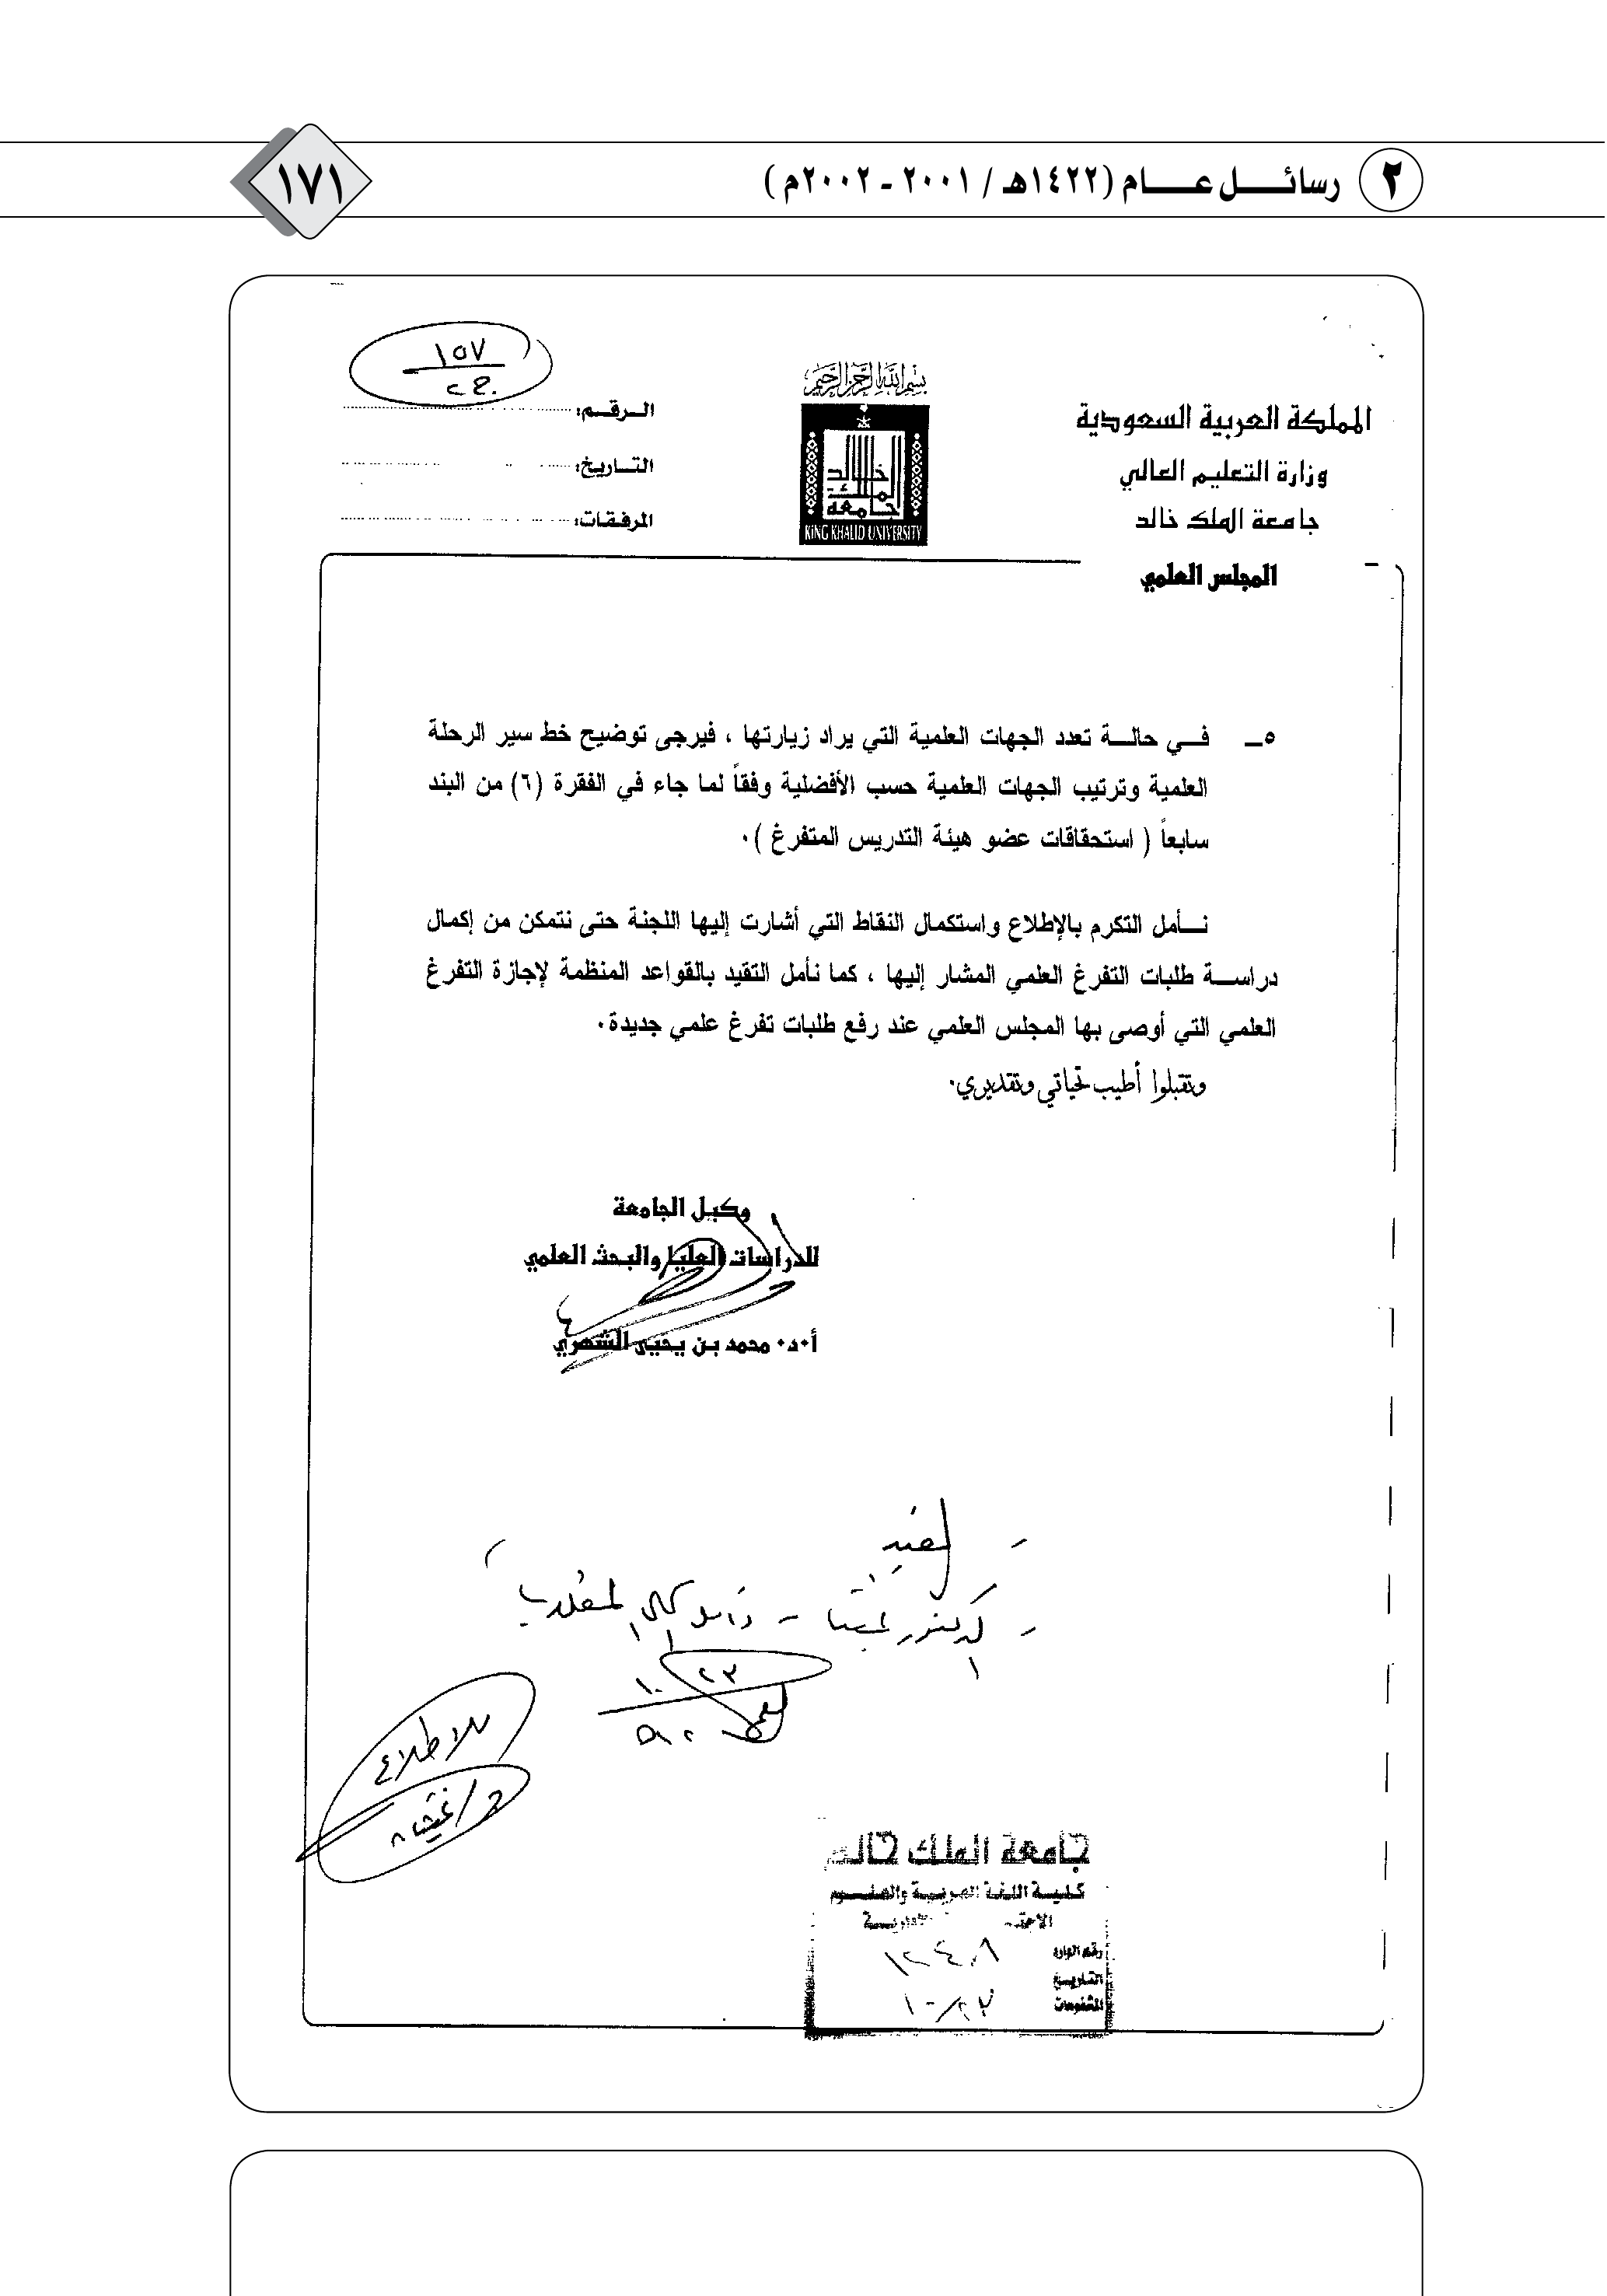 ٢ رسائـــــل عـــــام (١٤٢٢هـ / ٢٠٠١ - ٢٠٠٢م )
١٧١
بسم الله الرحمن الرحيم
المملكة العربية السعودية
وزارة التعليم العالي
جامعة الملك خالد
المجلس العلمي
جامعة
الملك
خالد
KING KHALID UNIVERSITY
١٥٧
الـرقـم:
التـاريخ:
المرفقات:
٥ــ فــي حالــة تعدد الجهات العلمية التي يراد زيارتها ، فيرجى توضيح خط سير الرحلة
العلمية وترتيب الجهات العلمية حسب الأفضلية وفقاً لما جاء في الفقرة (٦) من البند
سابعاً ( استحقاقات عضو هيئة التدريس المتفرغ )٠
نــأمل التكرم بالإطلاع واستكمال النقاط التي أشارت إليها اللجنة حتى نتمكن من إكمال
دراســة طلبات التفرغ العلمي المشار إليها ، كما نأمل التقيد بالقواعد المنظمة لإجازة التفرغ
العلمي التي أوصى بها المجلس العلمي عند رفع طلبات تفرغ علمي جديدة٠
وتقبلوا أطيب تحياتي وتقديري٠
وكيل الجامعة
للدراسات العليا والبحث العلمي
أ٠د٠ محمد بن يحيى الشهري
٢٣
١٠
للاطلاع
جامعة الملك خالد
كليــة اللغة العربيــة والعلــوم
رقم الوارد ١٢٤٠٨
التاريــخ ١٠/٢٣
المشفوعات